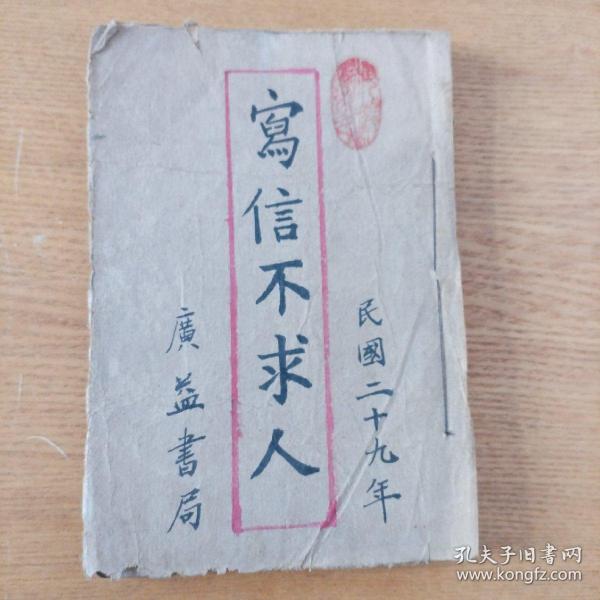 民國二十九年
寫信不求人
廣益書局
孔夫子旧书网
www.kongfz.com